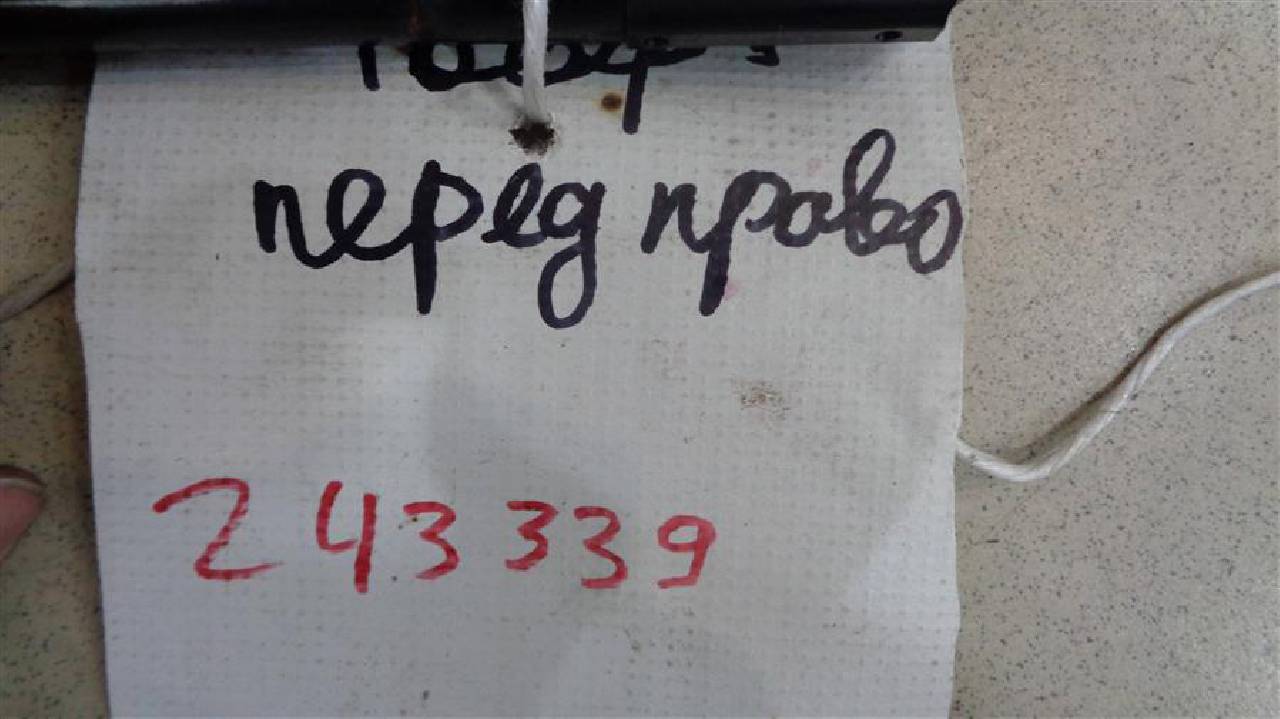 перед право
243339